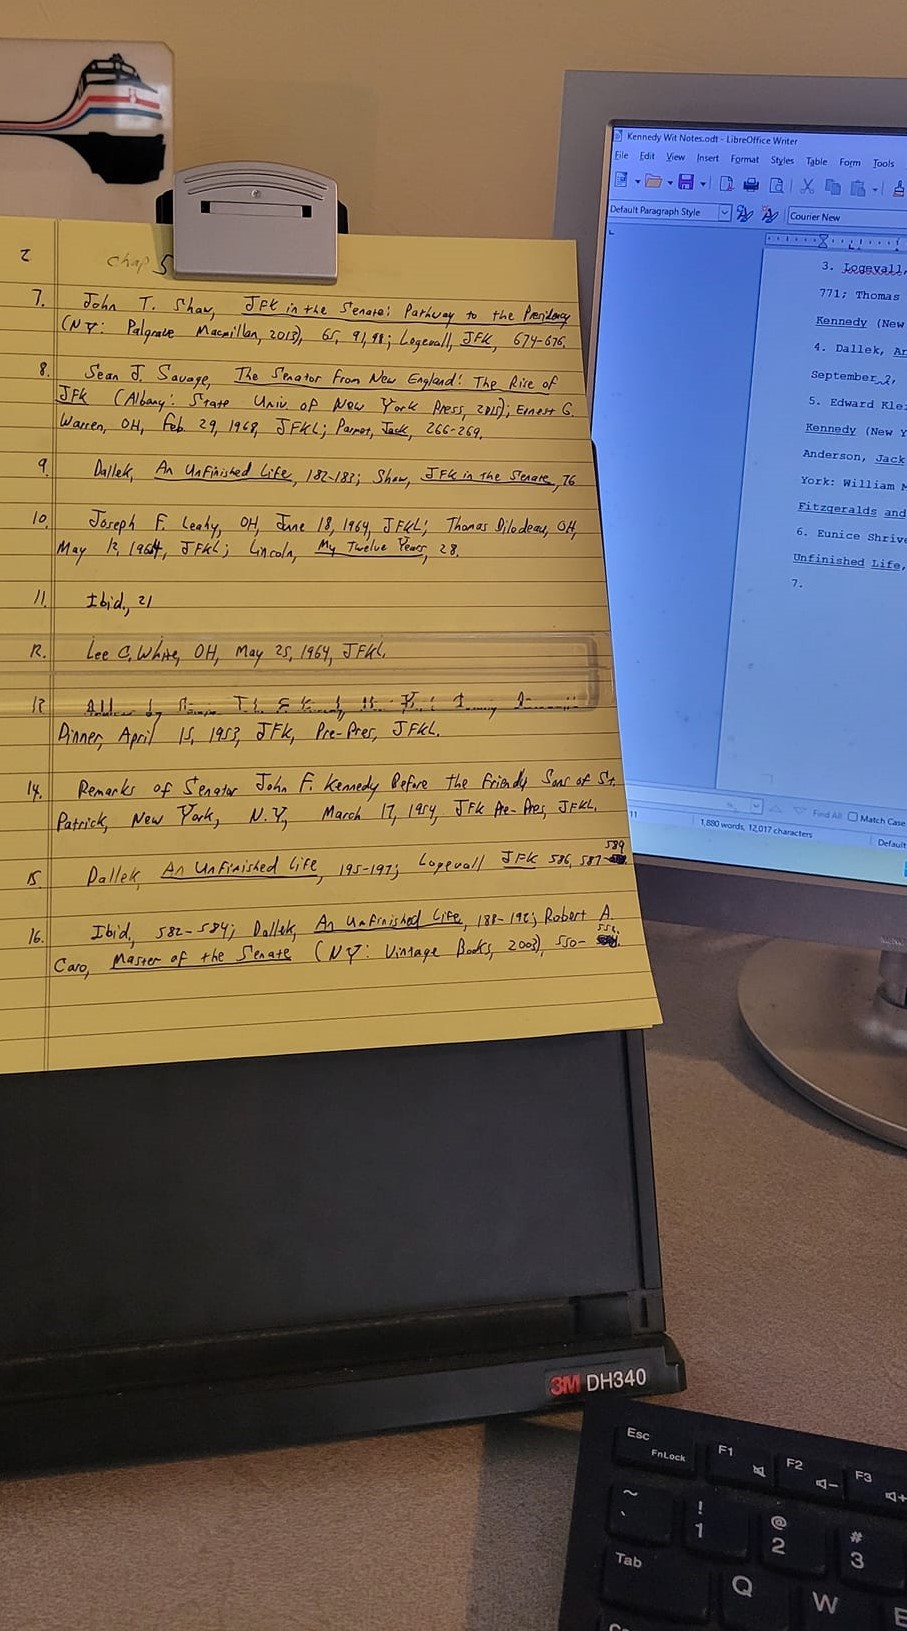 2
Chap 5
7. John T. Shaw, JFK in the Senate: Pathway to the Presidency
(NY: Palgrave Macmillan, 2013), 65, 91, 98; Logevall, JFK, 674-676.
8. Sean J. Savage, The Senator From New England: The Rise of
JFK (Albany: State Univ. of New York Press, 2015); Ernest G.
Warren, OH, Feb. 29, 1968, JFKL; Parmet, Jack, 266-269.
9. Dallek, An Unfinished Life, 182-183; Shaw, JFK in the Senate, 76
10. Joseph F. Leahy, OH, June 18, 1964, JFKL; Thomas Dilodeau, OH,
May 12, 1964, JFKL; Lincoln, My Twelve Years, 28.
11. Ibid., 21
12. Lee C. White, OH, May 25, 1964, JFKL.
13
Dinner, April 15, 1953, JFK, Pre-Pres, JFKL.
14. Remarks of Senator John F. Kennedy Before the Friendly Sons of St.
Patrick, New York, N.Y., March 17, 1954, JFK Pre-Pres, JFKL.
15 Dallek, An Unfinished Life, 195-197; Logevall JFK 586, 587-589
16. Ibid, 582-584; Dallek, An Unfinished Life, 188-192; Robert A.
Caro, Master of the Senate (NY: Vintage Books, 2003), 550-558.
3M DH340
Kennedy Wit Notes.odt - LibreOffice Writer
File Edit View Insert Format Styles Table Form Tools
Default Paragraph Style Courier New
3. Logevall,
771; Thomas
Kennedy (New
4. Dallek, An
September 2,
5. Edward Kle
Kennedy (New Y
Anderson, Jack
York: William M
Fitzgeralds and
6. Eunice Shrive
Unfinished Life,
7.
Find All Match Case
11 1,880 words, 12,017 characters Default
Esc FnLock F1 F2 F3
~ ` ! 1 @ 2 # 3
Tab Q W E